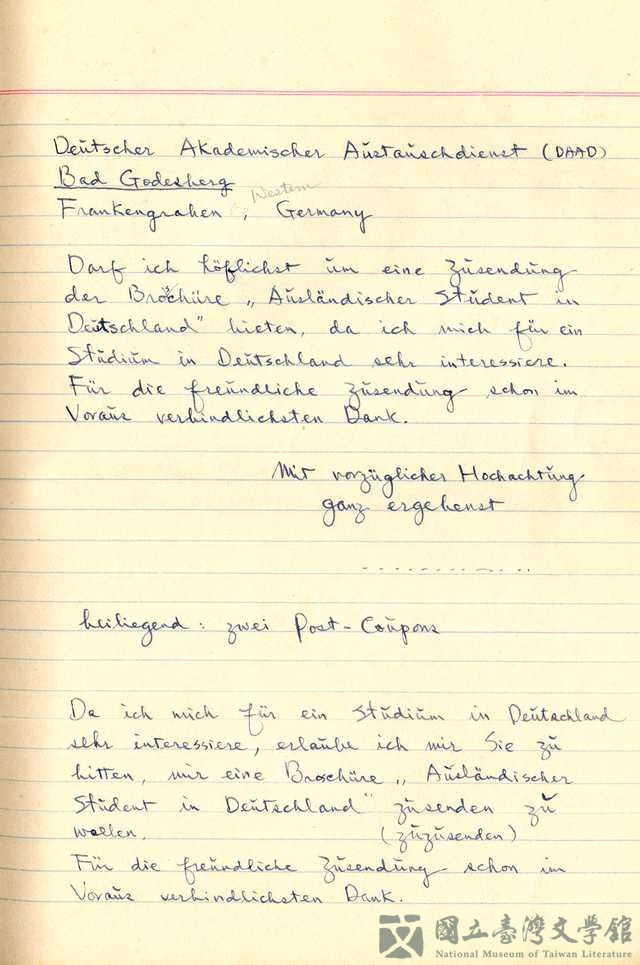 Deutscher Akademischer Austauschdienst (DAAD)
Bad Godesberg
Western
Frankengraben, Germany
Darf ich höflichst um eine Zusendung
der Broschüre „Ausländischer Student in
Deutschland" bieten, da ich mich für ein
Studium in Deutschland sehr interessiere.
Für die freundliche Zusendung schon im
Voraus verbindlichsten Dank.
Mit vorzüglicher Hochachtung
ganz ergebenst
beiliegend: zwei Post-Coupons
Da ich mich für ein Studium in Deutschland
sehr interessiere, erlaube ich mir Sie zu
bitten, mir eine Broschüre „Ausländischer
Student in Deutschland" zusenden zu
wollen. (zuzusenden)
Für die freundliche Zusendung schon im
Voraus verbindlichsten Dank.
國立臺灣文學館
National Museum of Taiwan Literature